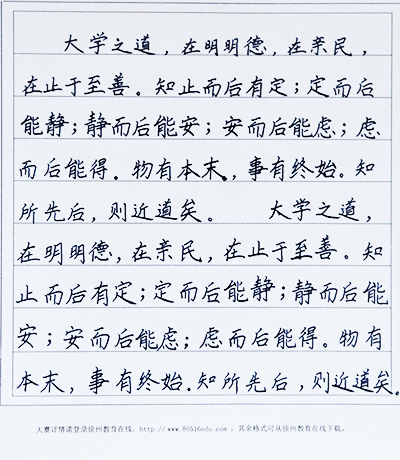 大学之道，在明明德，在亲民，
在止于至善。知止而后有定；定而后
能静；静而后能安；安而后能虑；虑
而后能得。物有本末，事有终始。知
所先后，则近道矣。 大学之道，
在明明德，在亲民，在止于至善。知
止而后有定；定而后能静；静而后能
安；安而后能虑；虑而后能得。物有
本末，事有终始。知所先后，则近道矣。
大赛详情请登录徐州教育在线：http://www.86516edu.com 。其余格式可从徐州教育在线下载。